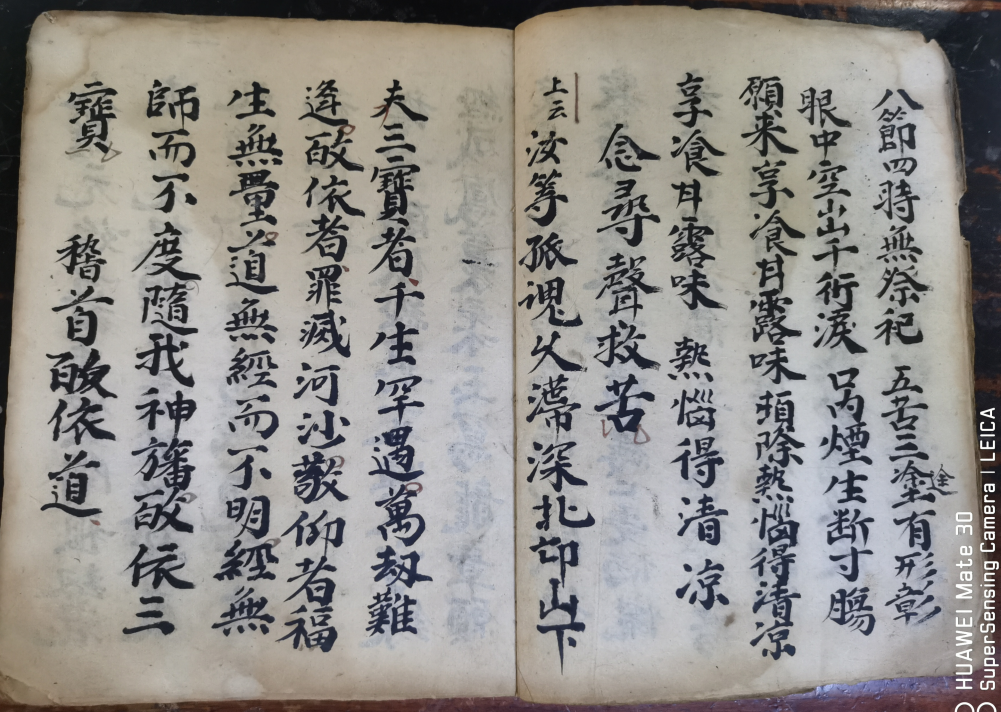 八節四時無祭祀 五苦三塗有形彰
途
眼中空出千行淚 口內煙生断寸膓
願来享飡甘露味 頓除熱惱得清凉
享飡甘露味 熱惱得清凉
念尋聲救苦
上云
汝等孤魂久滯深 北邙山下
夫三寶者千生罕遇萬劫難
逢皈依者罪滅河沙敬仰者福
生無量道無經而不明經無
師而不度隨我神旛皈依三
寶 稽首皈依道
HUAWEI Mate 30
SuperSensing Camera | LEICA